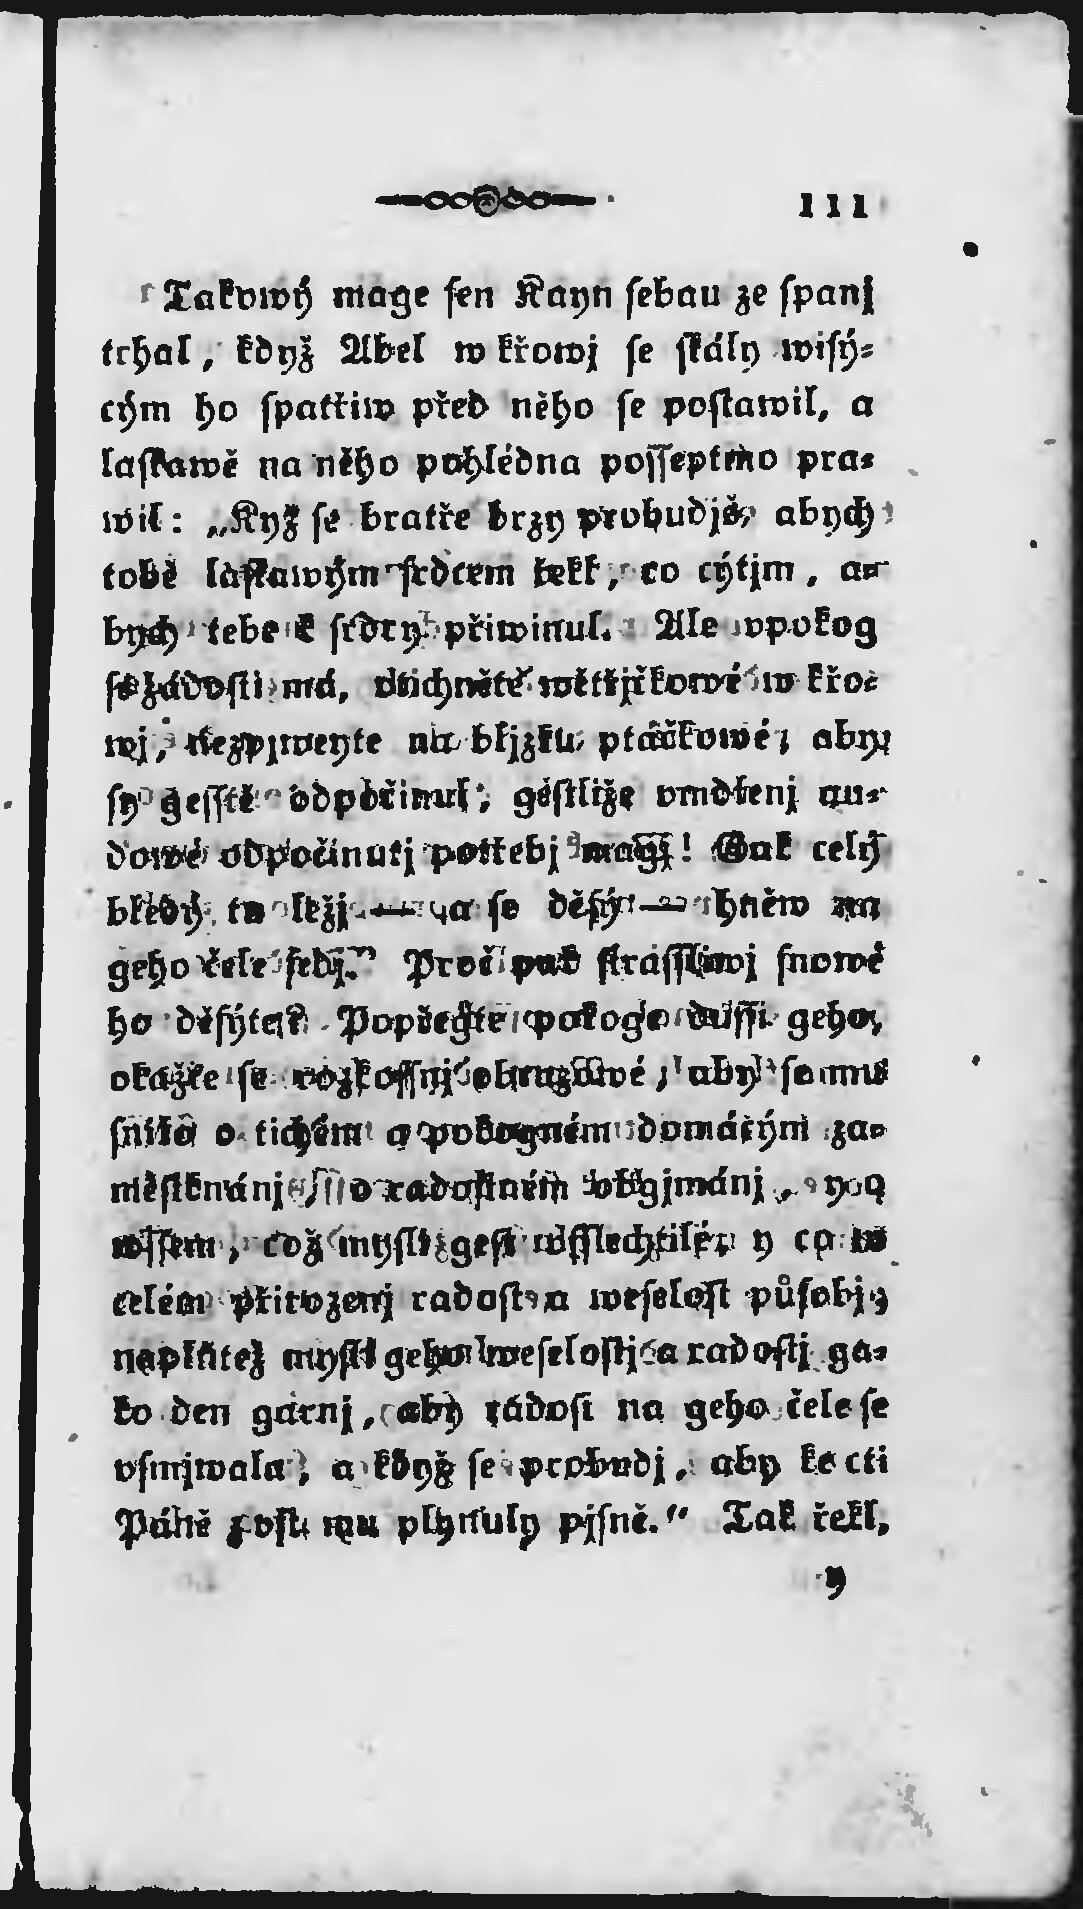 111
Takowý mage sen Kayn sebau ze spanj
trhal, když Abel w křowj se skály wisý-
cým ho spatřiw před něho se postawil, a
laskawě na něho pohlédna posseptmo pra-
wil: „Kyž se bratře brzy probudjš, abych
tobě laskawým srdcem řekl, co cýtjm, a-
bych tebe k srdcy přiwinul. Ale vpokog
se žádosti má, vtichněte wětřjčkowé w křo-
wj, nezpjweyte na bljzku ptáčkowé, aby
sy gesstě odpočinul, gestliže vmdlenj au-
dowé odpočinutj potřebj magj! Gak celý
bledý tu ležj — a se děsý — hněw na
geho čele sedj. Proč pak strasslíwj snowé
ho děsýte? Popřegte pokoge dussi geho,
okažte se rozkossnj obrazowé, aby se mu
snilo o tichém a pokogném domácým za-
městknánj, o radostném obgjmánj, y o
wssem, což mysli gest vsslechtilé, y co w
celém přirozenj radost a weselost působj,
naplňtež mysl geho weselostj a radostj ga-
ko den garnj, aby radost na geho čele se
vsmjwala, a když se probudj, aby ke cti
Páně z vst mu plynuly pjsně.“ Tak řekl,
y